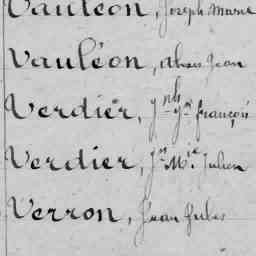 Vauléon, Joseph Marie
Vauléon, Jean
Verdier, Jph Jn françois
Verdier, Jn Mie Julien
Verron, Jean Jules